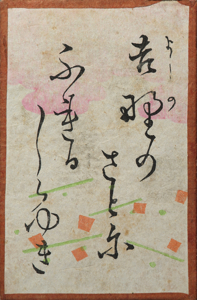 吉野の
よしの
さとに
ふれる
しらゆき